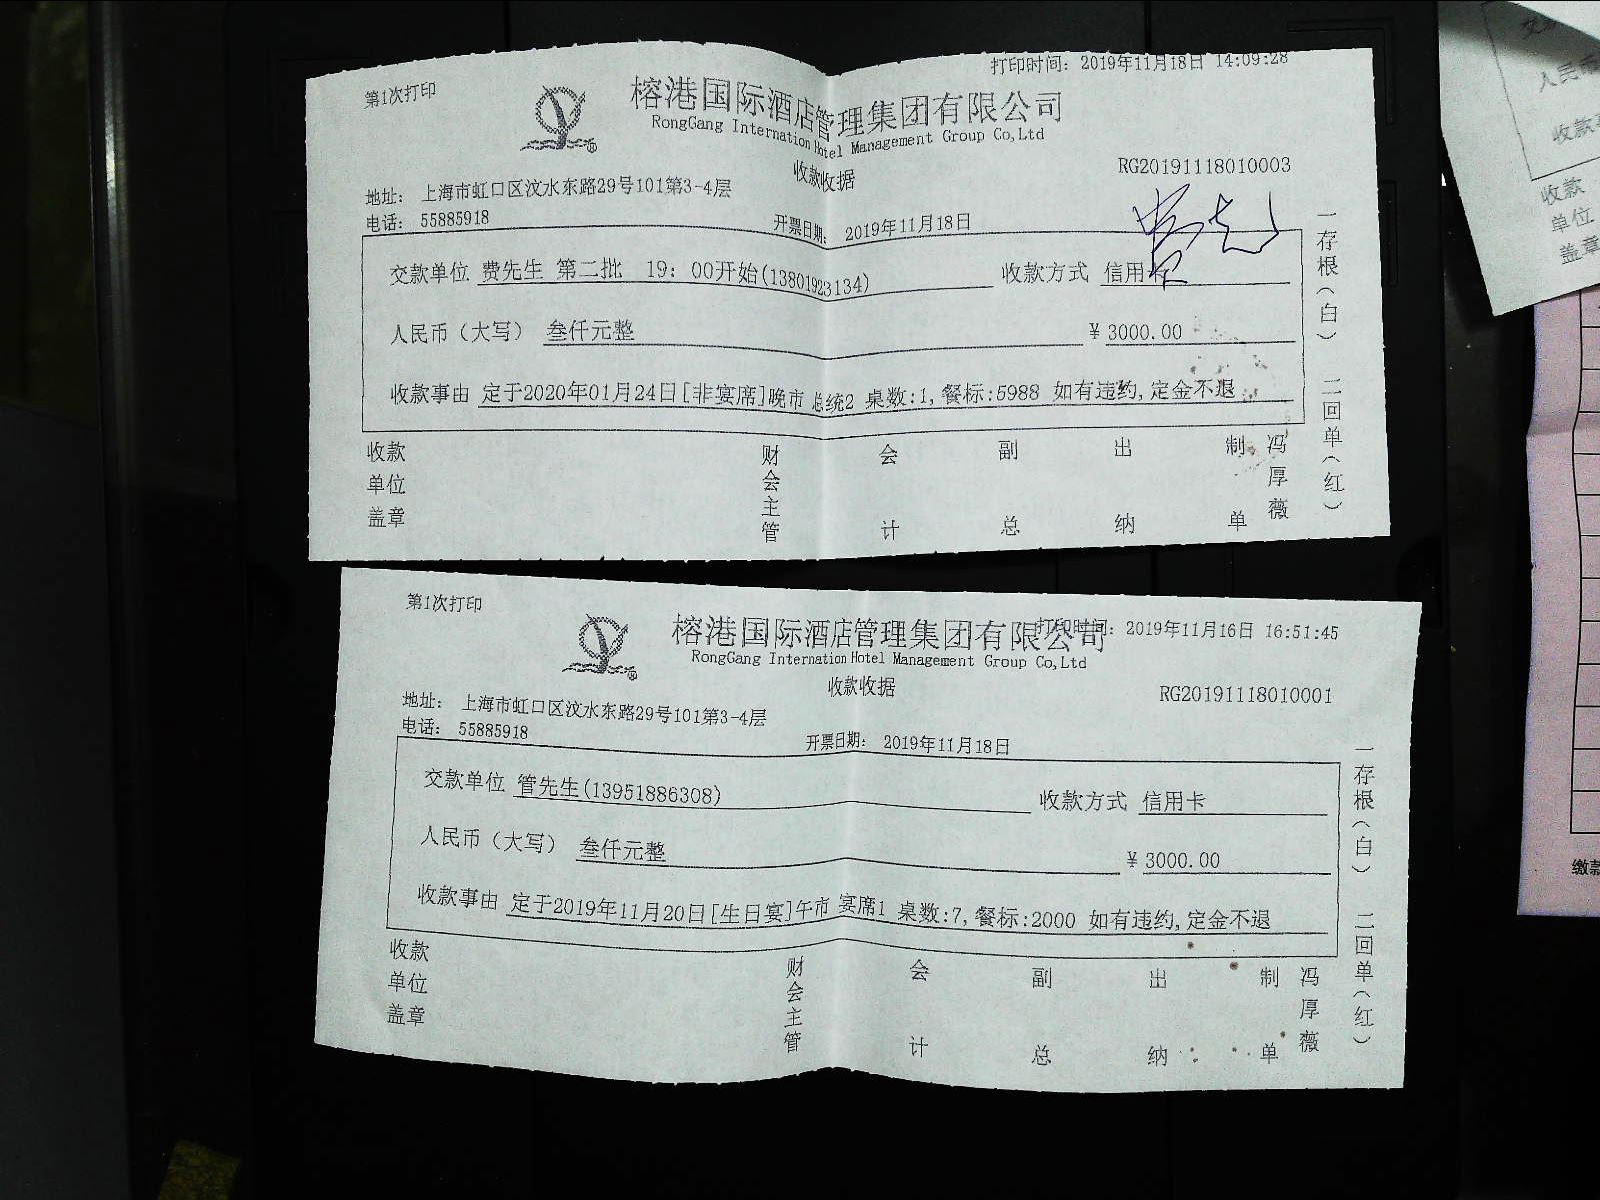 第1次打印
打印时间：2019年11月18日 14:09:28
榕港国际酒店管理集团有限公司
RongGang Internation Hotel Management Group Co,Ltd
收款收据
RG20191118010003
地址： 上海市虹口区汶水东路29号101第3-4层
电话： 55885918
开票日期： 2019年11月18日
交款单位 费先生 第二批 19：00开始(13801923134) 收款方式 信用卡
人民币（大写） 叁仟元整 ￥3000.00
收款事由 定于2020年01月24日[非宴席]晚市 总统2 桌数:1,餐标:5988 如有违约,定金不退
收款单位盖章 财会主管 会计 副总 出纳 制单 冯厚薇
一存根（白） 二回单（红）
第1次打印
打印时间：2019年11月16日 16:51:45
榕港国际酒店管理集团有限公司
RongGang Internation Hotel Management Group Co,Ltd
收款收据
RG20191118010001
地址： 上海市虹口区汶水东路29号101第3-4层
电话： 55885918
开票日期： 2019年11月18日
交款单位 管先生(13951886308) 收款方式 信用卡
人民币（大写） 叁仟元整 ￥3000.00
收款事由 定于2019年11月20日[生日宴]午市 宴席1 桌数:7,餐标:2000 如有违约,定金不退
收款单位盖章 财会主管 会计 副总 出纳 制单 冯厚薇
一存根（白） 二回单（红）
人民币
收款
收款
单位
盖章
缴款